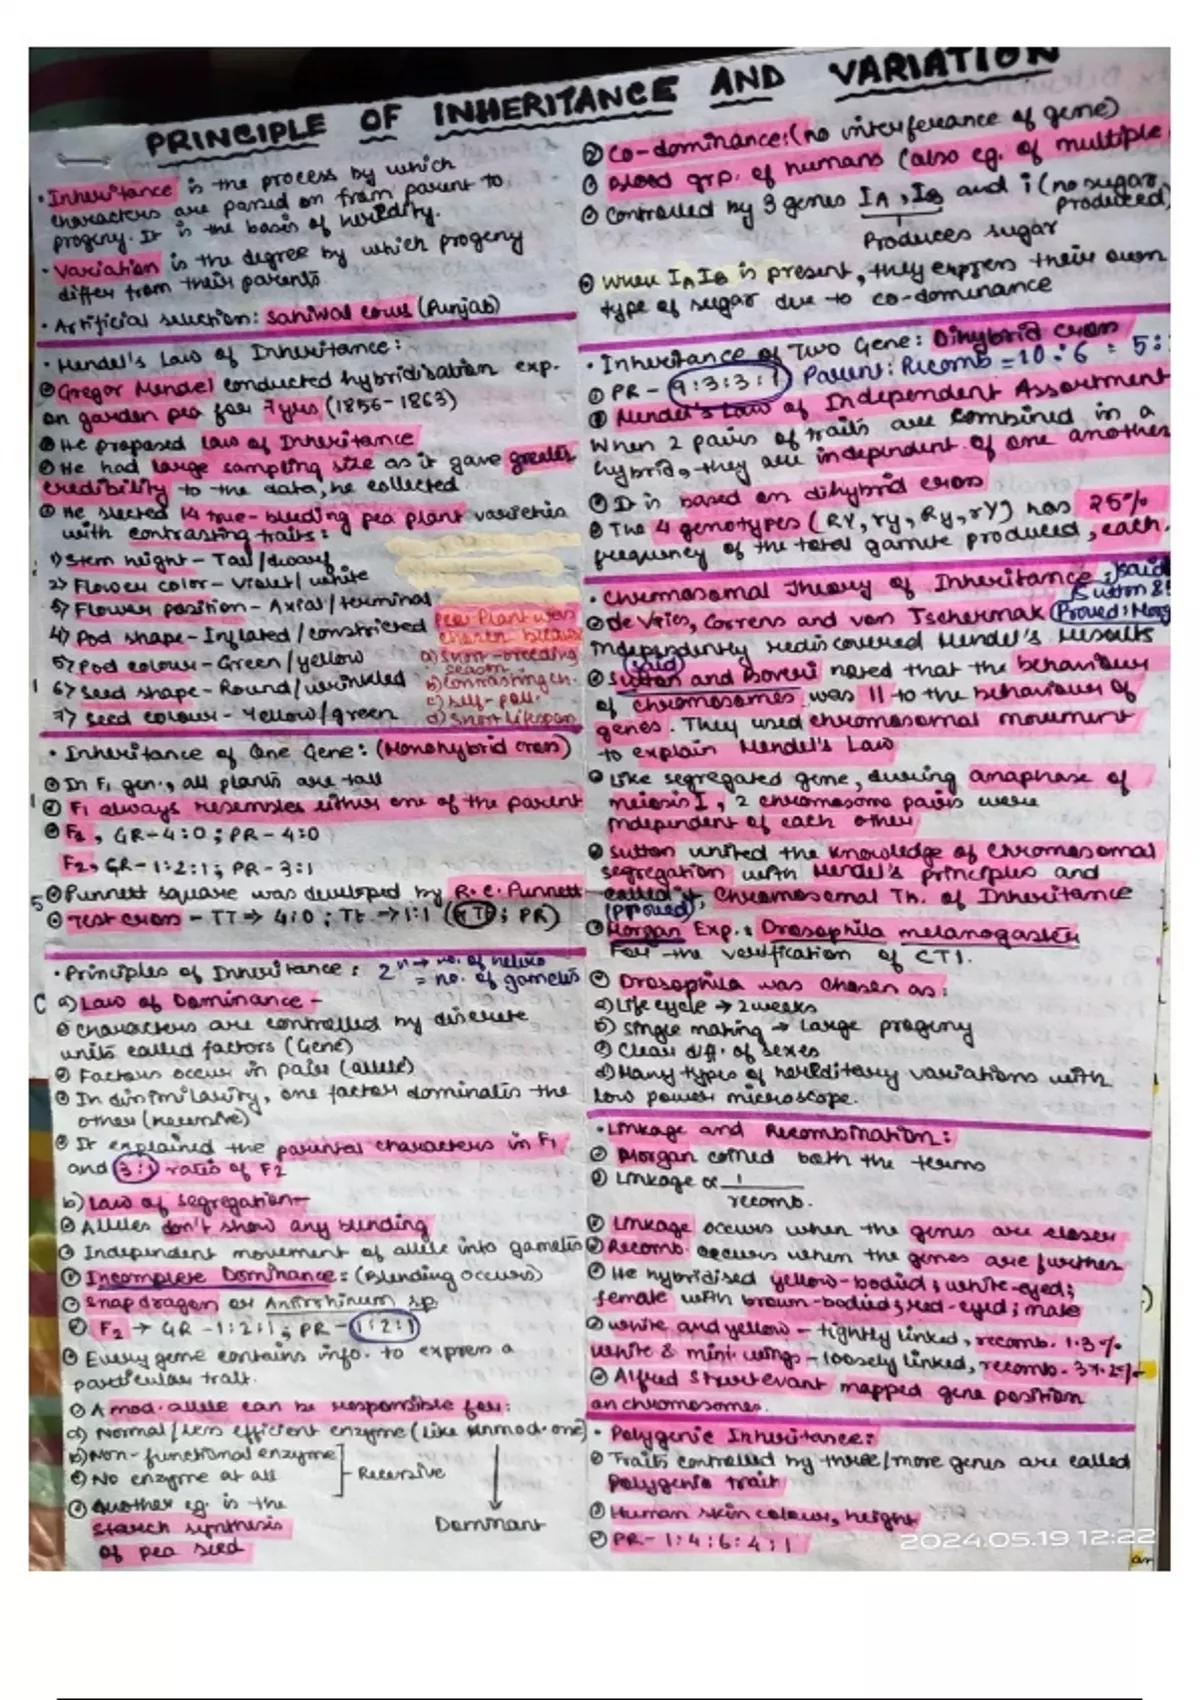 PRINCIPLE OF INHERITANCE AND VARIATION
• Inheritance is the process by which
characters are passed on from parent to
progeny. It is the basis of heredity.
• Variation is the degree by which progeny
differ from their parents.
• Artificial selection: Sahiwal cows (Punjab)
• Mendel's Law of Inheritance:
Gregor Mendel conducted hybridisation exp.
on garden pea for 7 yrs (1856-1863)
He proposed law of Inheritance
He had large sampling size as it gave greater
credibility to the data, he collected
He selected 14 true-breeding pea plant varieties
with contrasting traits:
1) Stem height - Tall/dwarf
2) Flower color - Violet/white
3) Flower position - Axial/terminal
4) Pod shape - Inflated/constricted
5) Pod colour - Green/yellow
6) Seed shape - Round/wrinkled
7) Seed colour - Yellow/green
Pea Plant was
chosen because
a) Short-breeding
season
b) Contrasting ch.
c) Self-poll.
d) Short lifespan
• Inheritance of One Gene: (Monohybrid Cross)
In F1 gen., all plants are tall
F1 always resembles either one of the parent
F1, GR-4:0; PR-4:0
F2, GR-1:2:1; PR-3:1
Punnett square was developed by R.C. Punnett
Test cross - TT → 4:0; Tt → 1:1 (; PR)
• Principles of Inheritance: 2ⁿ → no. of hetero
= no. of gametes
a) Law of Dominance -
Characters are controlled by discrete
units called factors (Gene)
Factors occur in pairs (allele)
In dissimilarity, one factor dominates the
other (recessive)
It explained the parental characters in F1
and 3:1 ratio of F2
b) Law of segregation-
Alleles don't show any blending
Independent movement of allele into gametes
Incomplete Dominance: (Blending occurs)
Snapdragon or Antirrhinum sp.
F2 → GR-1:2:1; PR-1:2:1
Every gene contains info. to express a
particular trait.
A mod. allele can be responsible for:
a) Normal/less efficient enzyme (like unmod. one)
b) Non-functional enzyme
c) No enzyme at all
Recessive
Dominant
Another eg. is the
starch synthesis
of pea seed
② Co-dominance: (no interference of gene)
Blood grp. of humans (also eg. of multiple
Controlled by 3 genes IA, IB and i (no sugar
produced)
Produces sugar
When IA IB is present, they express their own
type of sugar due to co-dominance
• Inheritance of Two Gene: Dihybrid cross
PR - 9:3:3:1 Parent: Recomb = 10:6 = 5:
Mendel's Law of Independent Assortment
When 2 pairs of traits are combined in a
hybrid, they are independent of one another
It is based on dihybrid cross
The 4 genotypes (RY, ry, Ry, rY) has 25%
frequency of the total gamete produced, each.
• Chromosomal Theory of Inheritance: said
Sutton &
de Vries, Correns and von Tschermak (Proved: Morg
independently rediscovered Mendel's results
(said)
Sutton and Boveri noted that the behaviour
of chromosomes was 11 to the behaviour of
genes. They used chromosomal movement
to explain Mendel's Law
Like segregated gene, during anaphase of
meiosis I, 2 chromosome pairs were
independent of each other
Sutton united the knowledge of chromosomal
segregation with Mendel's principles and
called it, Chromosomal Th. of Inheritance
(proved)
Morgan Exp.: Drosophila melanogaster
For the verification of CTI.
Drosophila was chosen as:
a) Life cycle → 2 weeks
b) Single mating → Large progeny
c) Clear diff. of sexes
d) Many types of hereditary variations with
low power microscope.
• Linkage and Recombination:
Morgan coined both the terms
Linkage ∝ 1
recomb.
Linkage occurs when the genes are closer
Recomb. occurs when the genes are further
He hybridised yellow-bodied; white-eyed;
female with brown-bodied; red-eyed; male
White and yellow - tightly linked, recomb. 1.3%
White & mini. wings - loosely linked, recomb. 37.2%
Alfred Sturtevant mapped gene position
on chromosomes.
• Polygenic Inheritance:
Traits controlled by three/more genes are called
Polygenic trait
Human skin colour, height
PR - 1:4:6:4:1
2024.05.19 12:22